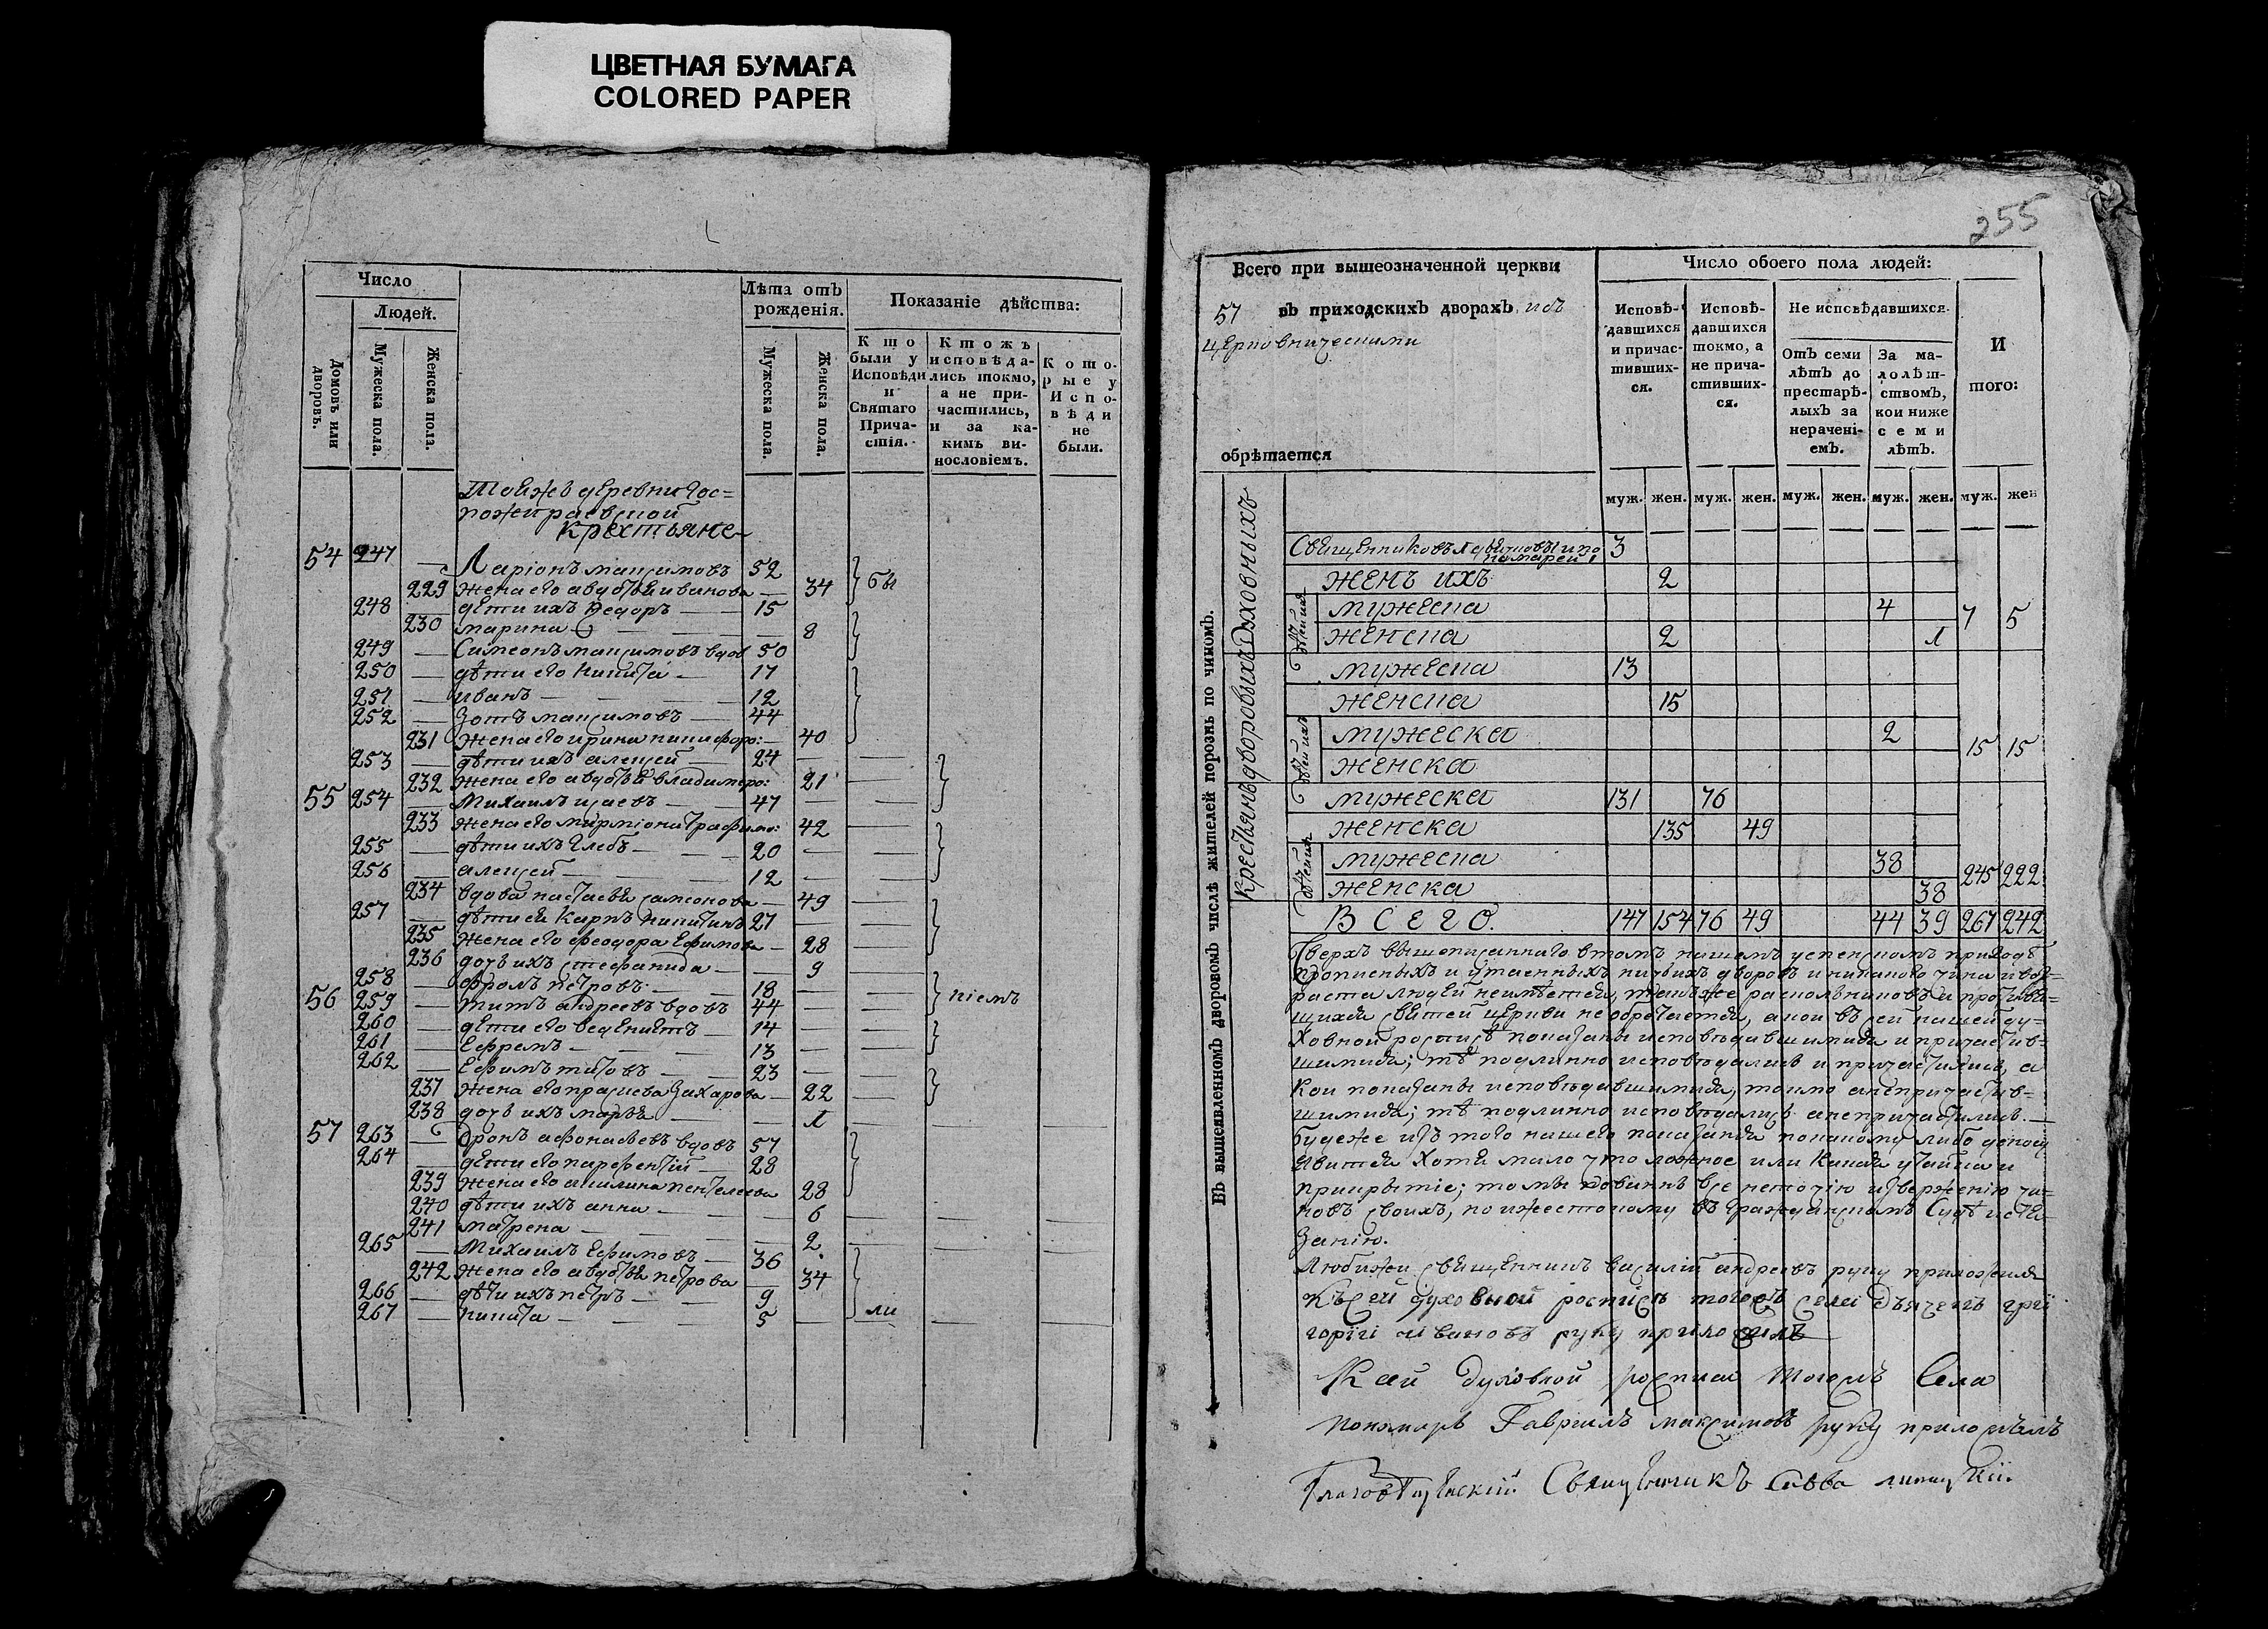 ЦВЕТНАЯ БУМАГА
COLORED PAPER
Число
Людей.
Домовъ или дворовъ.
Мужеска пола.
Женска пола.
Лѣта отъ рожденія.
Мужеска пола.
Женска пола.
Показаніе дѣйства:
Кто были у Исповѣди и Святаго Причастія.
Ктожъ исповѣдались токмо, а не причастились, и за какимъ винословіемъ.
Которые у Исповѣди не были.
Тоейжъ деревни гос=
пожи
крестьяне
54 247 — Ларіонъ максимовъ 52
229 жена его авдотья иванова — 34 бы
248 — дети ихъ Федоръ — 15
230 марина — 8
249 — Симеонъ максимовъ вдов 50
250 — дѣти его никита — 17
251 — иванъ — 12
252 — Зотъ максимовъ — 44
231 жена его ирина никифоро: — 40
253 — дѣти ихъ алексей — 24
232 жена его авдотья владимеро: 21
55 254 — Михаилъ исаевъ — 47
233 жена его мирміонія трафимо: 42
255 — дѣти ихъ глебъ — 20
256 — алексей — 12
234 вдова настасья самсонова — 49
257 — дѣти ея Карпъ никитинъ 27
235 жена его феодора Ефимова — 28
236 дочь ихъ стефанида — 9
258 — фролъ петровъ — 18 ніемъ
56 259 — титъ андреевъ вдовъ 44
260 — дети его веденихтъ — 14
261 — Ефремъ — 13
262 — Ефимъ титовъ — 23
237 жена его прасковья Захарова — 22
238 дочь ихъ марья — 1
57 263 — Фролъ афонасьевъ вдовъ 57
264 — дети его парфентій — 28
239 жена его акилина пентелеева 28
240 дѣти ихъ анна — 6
241 матрена — 2
265 — Михаилъ Ефимовъ — 36
242 жена его авдотья петрова — 34
266 — дѣти ихъ петръ — 9 ли
267 — никита — 5
255
Всего при вышеозначенной церкви
57 въ приходскихъ дворахъ изъ
церковническими
обрѣтается
Число обоего пола людей:
Исповѣдавшихся и причастившихся.
Исповѣдавшихся токмо, а не причастившихся.
Не исповѣдавшихся.
Отъ семи лѣтъ до престарѣлыхъ за нераченіемъ.
За малолѣтствомъ, кои ниже семи лѣтъ.
И того:
муж. жен. муж. жен. муж. жен. муж. жен. муж. жен
Въ вышеявленномъ дворовомъ числѣ жителей порознь по чиномъ.
Духовныхъ
Священниковъ дьяконовъ и по
номарей 3
женъ ихъ 2
Дѣтей ихъ
мужеска 4
женска 2 1
7 5
дворовыхъ
мужеска 13
женска 15
Дѣтей ихъ
мужеска 2
женска
15 15
Крестьянъ
мужеска 131 76
женска 135 49
Дѣтей ихъ
мужеска 38
женска 38
245 222
ВСЕГО. 147 154 76 49 44 39 267 242
Сверхъ вышеписаннаго втомъ нашемъ успенскомъ приходѣ
прописныхъ и утаенныхъ никакихъ дворовъ и никакого чина и воз=
раста людей неимѣется, такъже раскольниковъ и противя=
щихся святей церкви не обретается, а кои въ сей нашей ду=
ховной росписѣ показаны исповѣдавшимися и причастив=
шимися; тѣ подлинно исповѣдались и причастились, а
кои показаны исповѣдавшимися, токмо анепричастив=
шимися; тѣ подлинно исповѣдались анепричастились.—
будеже изъ того нашего показания покакому либо доносу
явится хотя мало что ложное или какая утайка и
прикрытіе; то мы повинны все неточію изверженію чи=
новъ своихъ, но ижестокому въ гражданскомъ Судѣ истя=
занію.
священникъ василій андреевъ руку приложилъ
Къ сей духовной росписѣ тогожъ села дьячекъ гри
горіи ивановъ руку приложилъ
К сей духовной росписи тогожъ села
пономарь Гавриилъ максимовъ руку приложилъ
Священникъ Савва